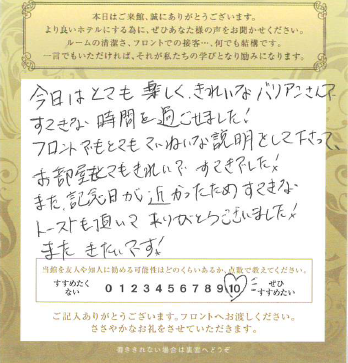 本日はご来館、誠にありがとうございます。
より良いホテルにする為に、ぜひあなた様の声をお聞かせください。
ルームの清潔さ、フロントでの接客…、何でも結構です。
一言でもいただければ、それが私たちの学びとなり励みになります。
今日はとても楽しく、きれいなバリアンさんで
すてきな時間を過ごせました!
フロントでもとてもていねいな説明をして下さって、
お部屋もとてもきれいで、すてきでした!
また、記念日が近かったためすてきな
トーストも頂いてありがとうございました!
また きたいです!
当館を友人や知人に勧める可能性はどのくらいあるか、点数で教えてください。
すすめたくない 0 1 2 3 4 5 6 7 8 9 10 ぜひすすめたい
ご記入ありがとうございます。フロントへお渡しください。
ささやかなお礼をさせていただきます。
書ききれない場合は裏面へどうぞ